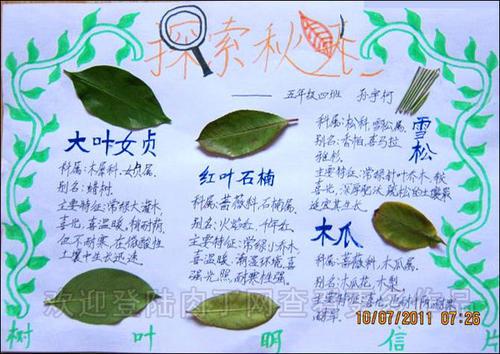 探索秋
—— 五年级四班 孙宇柯
大叶女贞
科属:木犀科、女贞属
别名:蜡树
主要特征:常绿大灌木,
喜光,喜温暖,稍耐阴,
但不耐寒,在微酸性
土壤中生长迅速.
红叶石楠
科属:蔷薇科,石楠属
别名:火焰红,千年红
主要特征:常绿小乔木,
喜温暖、潮湿环境,喜
强光照,耐寒性强.
雪松
科属:松科,雪松属
别名:香柏,喜马拉
雅杉
主要特征:常绿针叶乔木,较
喜光,深厚肥沃、疏松的土壤最
适宜其生长.
木瓜
科属:蔷薇科,木瓜属
别名:木瓜花,木梨
耐寒
耐旱.
欢迎登陆肉丁网查
作品
10/07/2011 07:26
树叶明信片